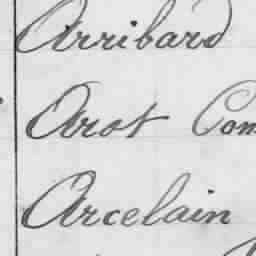 Arribard
Arot Com
Arcelain